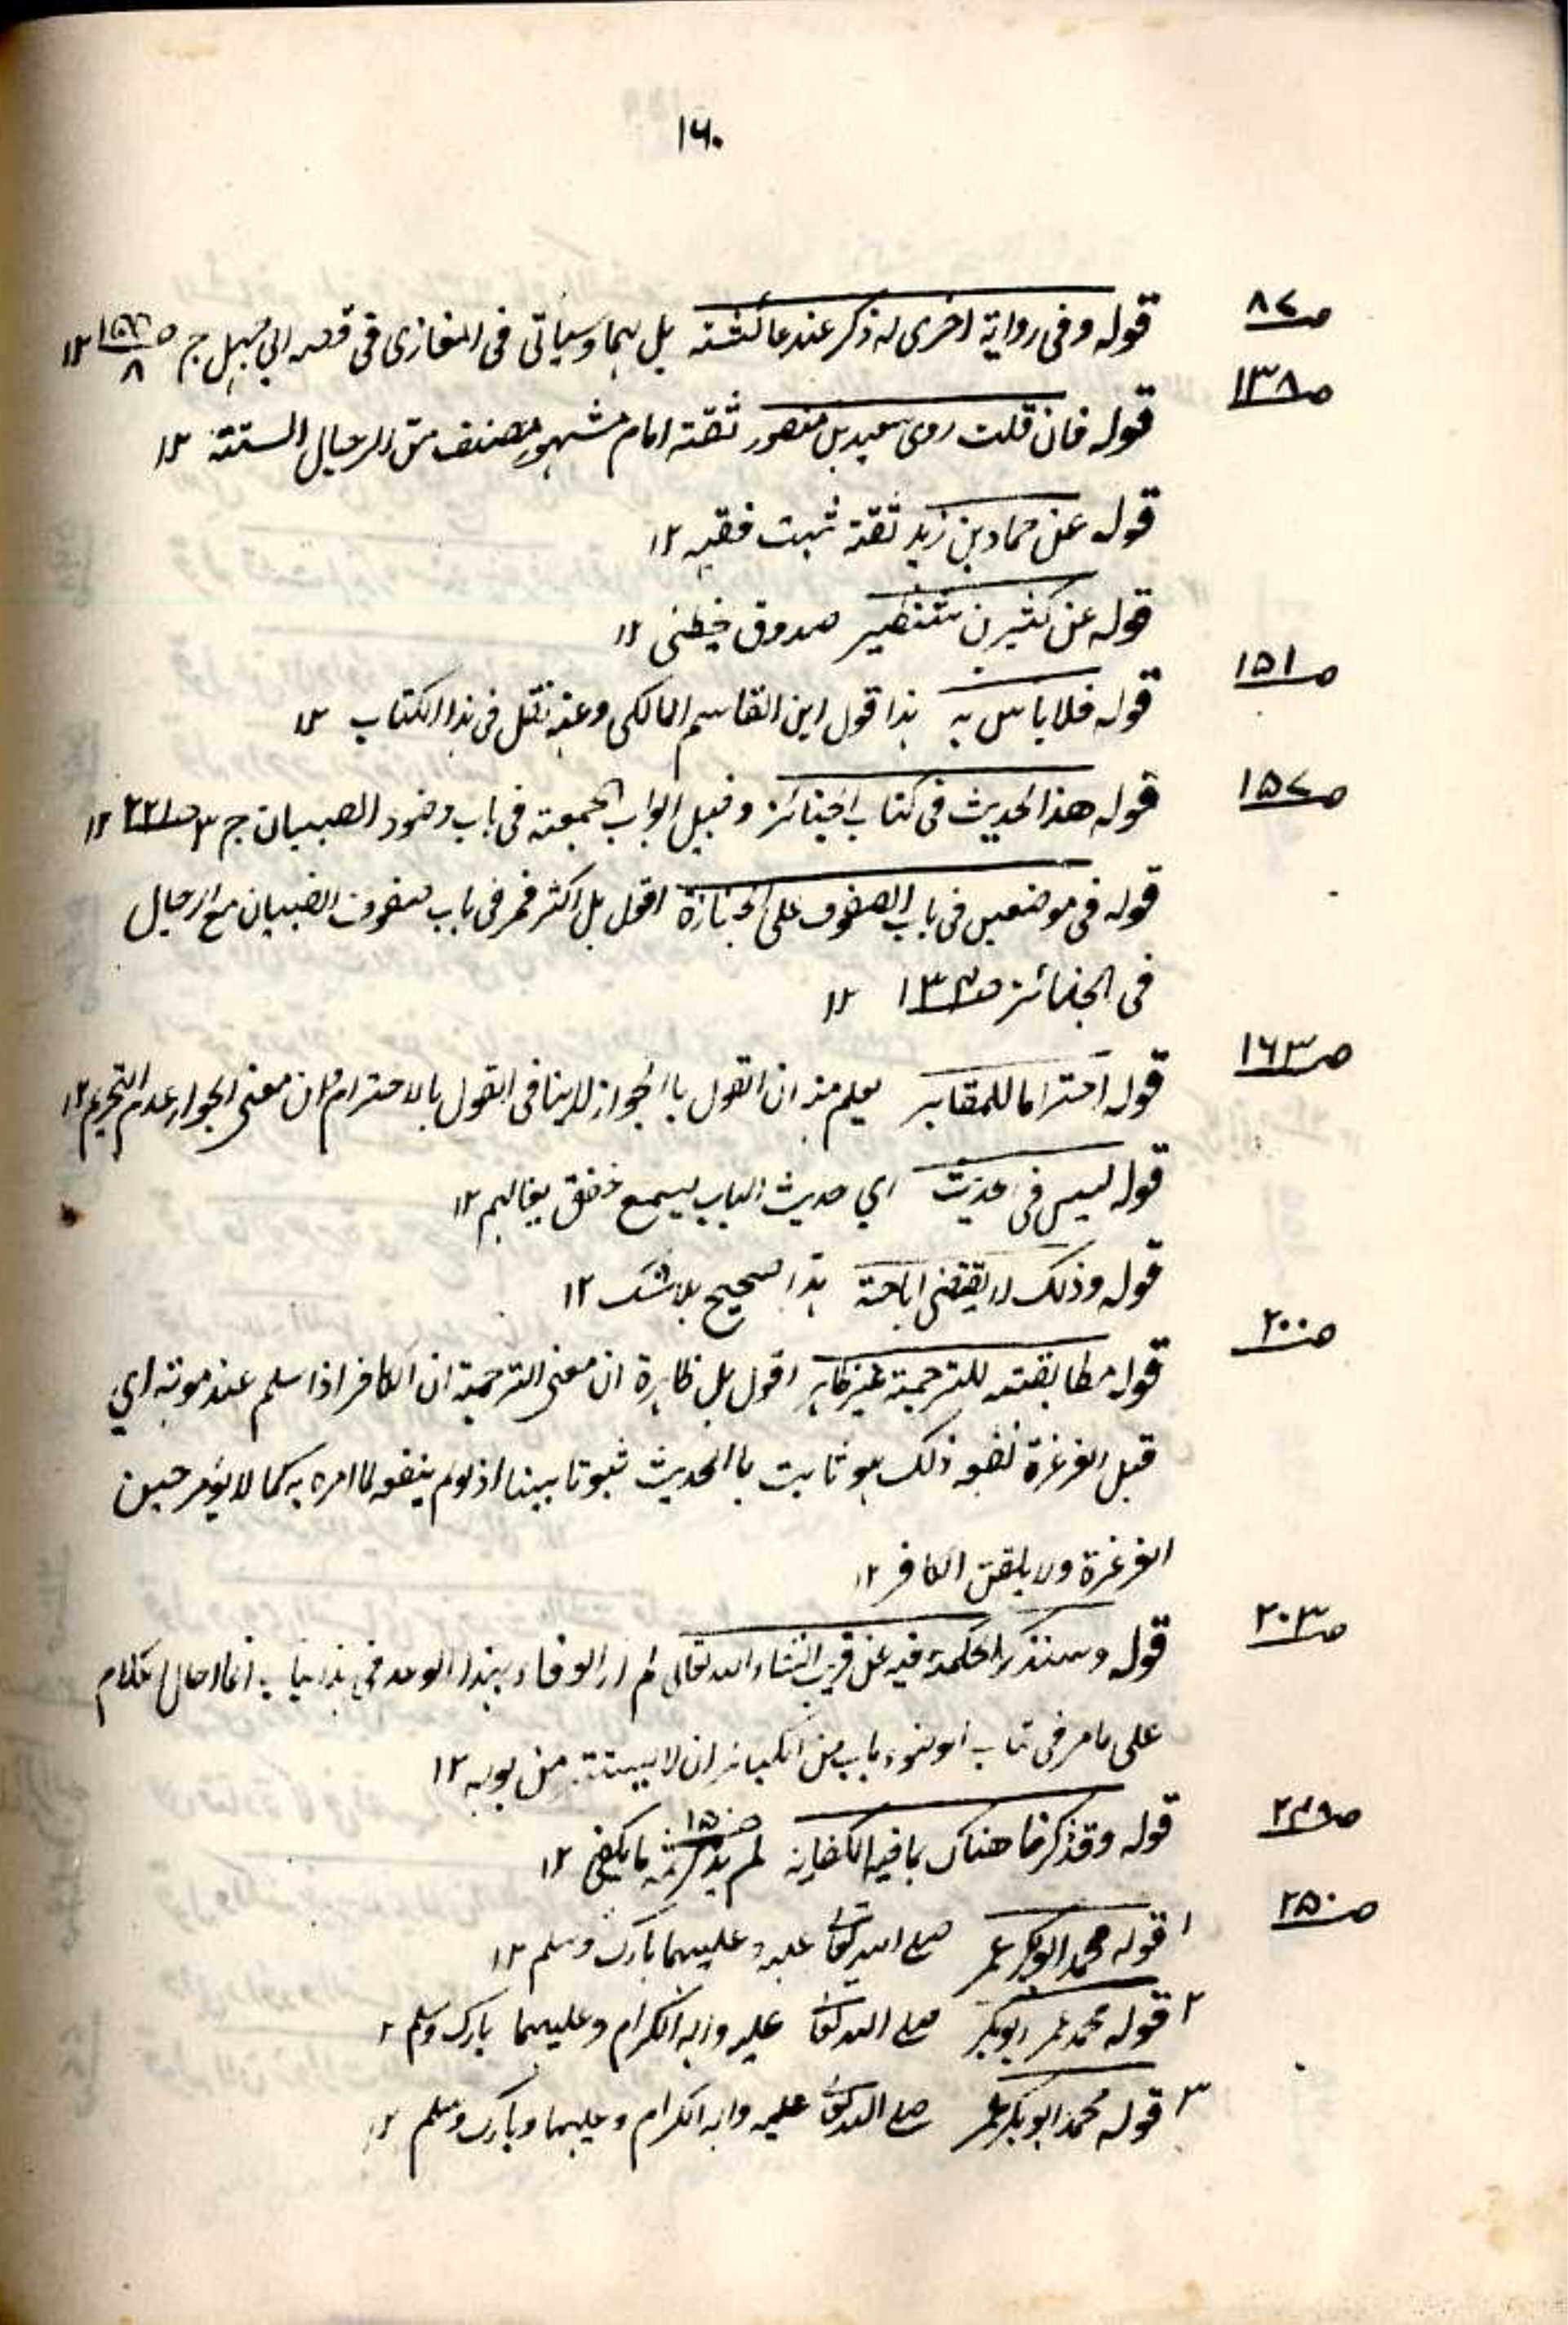 ١٦٠
صـ٨٧ قوله وفى رواية اخرى له ذكر عند عائشة بل لهما وسياتى فى المغازى فى قصه ابى جهل ج ٨ ١٢
صـ١٣٨ قوله فان قلت روى سعيد بن منصور ثقته امام مشهور مصنف من الرجال الستة ١٢
قوله عن حماد بن زيد ثقة ثبت فقيه ١٢
قوله عن كثير بن شنظير صدوق يخطئ ١٢
صـ١٥١ قوله فلا باس به هذا قول ابن القاسم المالكى وعنه نقل فى هذا الكتاب ١٢
صـ١٥٧ قوله هذا الحديث فى كتاب الجنائز وقبيل ابواب الجمعته فى باب وضوء الصبيان ج ٣ صـ٢٢١ ١٢
قوله فى موضعين فى باب الصفوف على الجنازة اقول بل اكثر فمر فى باب صفوف الصبيان مع الرجال
فى الجنائز صـ١٣٤ ١٢
صـ١٦٣ قوله احتراما للمقابر يعلم منه ان القول باالجواز لاينافى القول بالاحترام لان معنى الجواز عدم التحريم ١٢
قوله ليس فى حديث اي حديث الباب يسمع خفق نعالهم ١٢
قوله وذلك لا يقتضى اباحة هذا صحيح بلاشك ١٢
صـ٢٠٠ قوله مطابقته للترجمة غير ظاهر اقول بل ظاهرة ان معنى الترجمة ان الكافر اذا سلم عند موته اي
قبل الغرغرة نفعه ذلك هو ثابت باالحديث ثبوتا بينا اذ لو لم ينفعه لما امره به كما لا يؤمر حين
الغرغرة ولا يلقن الكافر ١٢
صـ٢٠٣ قوله وسنذكر الحكمة فيه عن قريب انشاء الله تعالى لم ار الوفاء بهذا الوعد فى هذا الباب انما احال الكلام
على ما مر فى كتاب الوضوء باب من الكبائر ان لا يستتر من بوله ١٢
صـ٢٤٩ قوله وقد ذكرنا هناك ما فيه الكفاية لم يذكر ثمه ما يكفى ١٢
صـ٢٥٠ ١ قوله محمد ابوبكر عمر صلے الله تعالٰے عليه وعليهما بارك وسلم ١٢
٢ قوله محمد عمر ابوبكر صلے الله تعالٰے عليه واله الكرام وعليهما بارك وسلم ٢
٣ قوله محمد ابوبكر عمر صلے الله تعالٰے عليه واله الكرام وعليهما وبارك وسلم ١٢